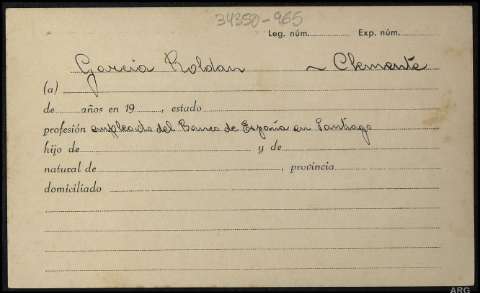 34350-965
Leg. núm. Exp. núm.
Garcia Roldan ~ Clemente
(a)
de años en 19 , estado
profesión empleado del Banco de España en Santiago
hijo de y de
natural de , provincia
domiciliado
ARG